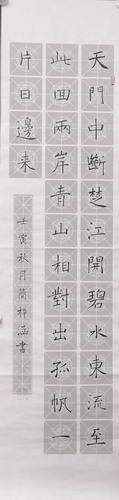 天門中斷楚江開碧水東流至
此回兩岸青山相對出孤帆一
片日邊来
壬寅秋月簡梓涵書